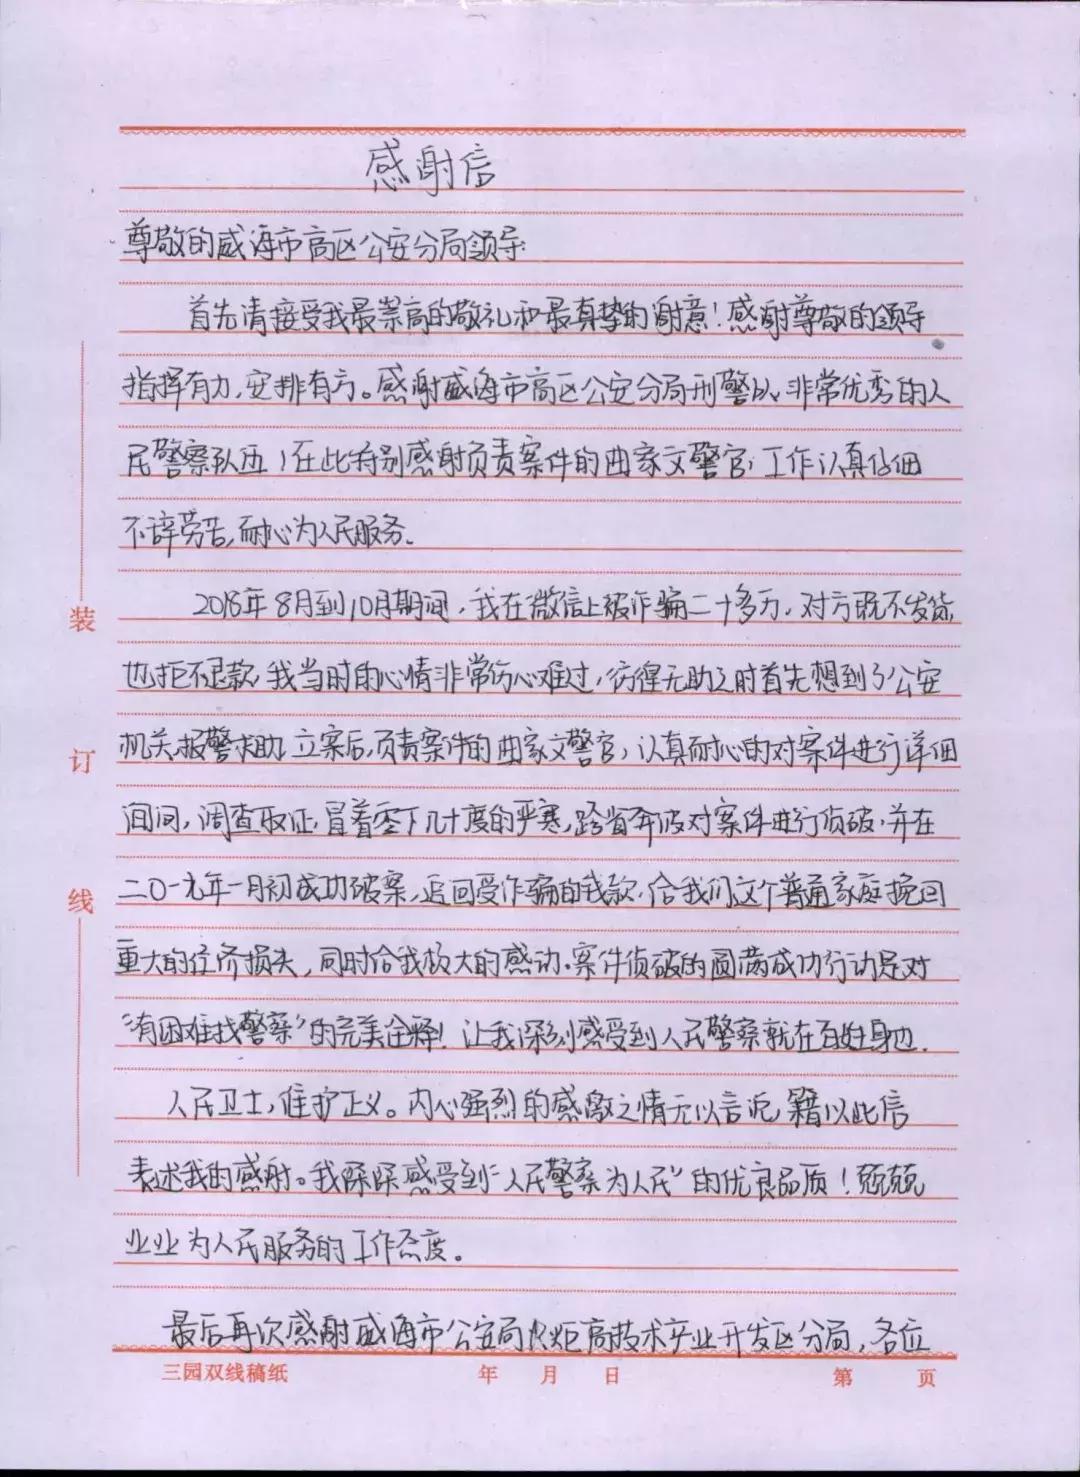 感谢信
尊敬的威海市高区公安分局领导:
首先请接受我最崇高的敬礼和最真挚的谢意!感谢尊敬的领导
指挥有力,安排有方。感谢威海市高区公安分局刑警队,非常优秀的人
民警察队伍!在此特别感谢负责案件的曲家文警官,工作认真仔细
不辞劳苦,耐心为人民服务.
2018年8月到10月期间,我在微信上被诈骗二十多万,对方既不发货
也拒不退款,我当时的心情非常伤心难过,彷徨无助之时首先想到了公安
机关,报警求助,立案后,负责案件的曲家文警官,认真耐心的对案件进行详细
询问,调查取证,冒着零下几十度的严寒,跨省奔波对案件进行侦破,并在
二〇一九年一月初成功破案,追回受诈骗的钱款,给我们这个普通家庭挽回
重大的经济损失,同时给我极大的感动.案件侦破的圆满成功行动是对
“有困难找警察”的完美诠释!让我深刻感受到人民警察就在百姓身边.
人民卫士,维护正义。内心强烈的感激之情无以言说,籍以此信
表述我的感谢。我深深感受到“人民警察为人民”的优良品质!兢兢
业业为人民服务的工作态度。
最后再次感谢威海市公安局火炬高技术产业开发区分局,各位
装
订
线
三园双线稿纸 年 月 日 第 页